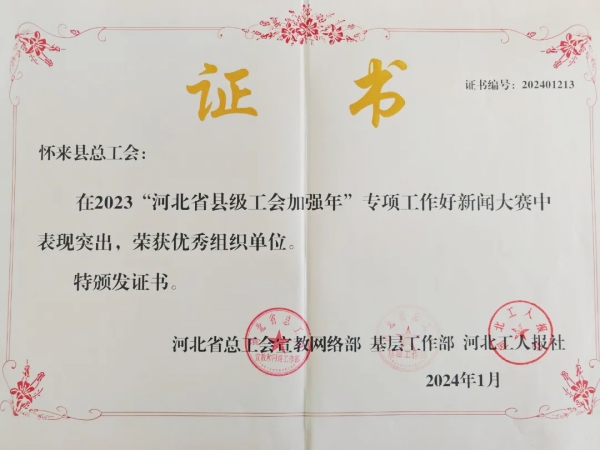 证书
证书编号：202401213
怀来县总工会：
在2023“河北省县级工会加强年”专项工作好新闻大赛中
表现突出，荣获优秀组织单位。
特颁发证书。
河北省总工会宣教网络部 基层工作部 河北工人报社
2024年1月